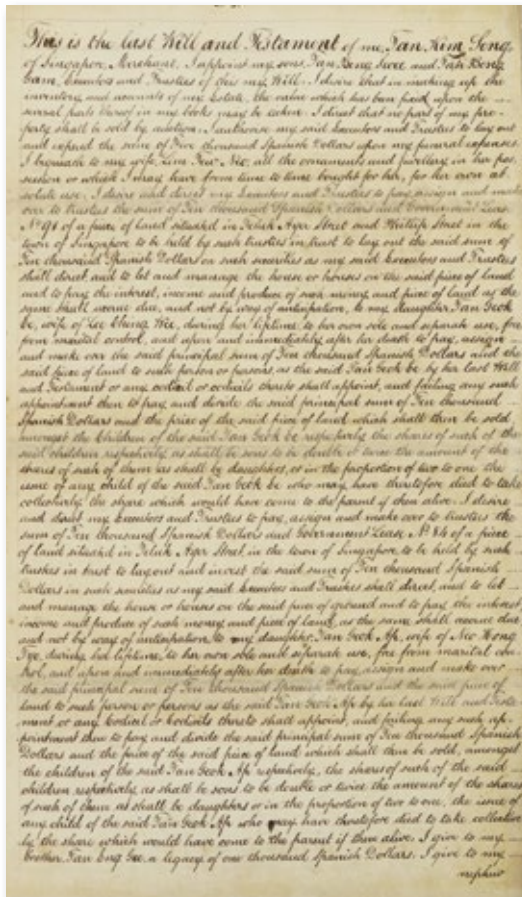 This is the last Will and Testament of me, Tan Kim Seng
of Singapore, Merchant. I appoint my sons, Tan Beng Swee and Tan Beng
Gum, Executors and Trustees of this my Will. I desire that in making up the
inventory and accounts of my Estate, the value which has been fixed upon the
several parts thereof in my books may be taken. I direct that no part of my pro-
perty shall be sold by auction. I authorise my said Executors and Trustees to lay out
and expend the sum of Five thousand Spanish Dollars upon my funeral expenses.
I bequeath to my wife, Lim Neo, all the ornaments and jewellery in her pos-
session or which I may have from time to time bought for her, for her own ab-
solute use. I desire and direct my Executors and Trustees to pay, assign and make
over to trustees the sum of Ten thousand Spanish Dollars and Government Lease
No. 98 of a piece of land situated in Teluk Ayer Street and Phillip Street in the
town of Singapore to be held by such trustees in trust to lay out the said sum of
Ten thousand Spanish Dollars on such securities as my said Executors and Trustees
shall direct, and to let and manage the house or houses on the said piece of land
and to pay the interest, income and produce of such money and piece of land as the
same shall accrue due, and not by way of anticipation, to my daughter Tan Geok
be, wife of Lee Cheng Wee, during her lifetime, to her own sole and separate use, free
from marital control, and upon and immediately after her death to pay, assign
and make over the said principal sum of Ten thousand Spanish Dollars and the
said piece of land to such person or persons, as the said Tan Geok be by her last Will
and Testament or any codicil or codicils thereto shall appoint, and failing any such
appointment then to pay and divide the said principal sum of Ten thousand
Spanish Dollars and the price of the said piece of land which shall then be sold,
amongst the Children of the said Tan Geok be respectively, the shares of such of the
said children respectively, as shall be sons to be double or twice the amount of the
shares of such of them as shall be daughters, or in the proportion of two to one the
issue of any child of the said Tan Geok be who may have theretofore died to take
collectively the share which would have come to the parent if then alive. I desire
and direct my Executors and Trustees to pay, assign and make over to trustees the
sum of Ten thousand Spanish Dollars and Government Lease No. 84 of a piece
of land situated in Teluk Ayer Street, in the town of Singapore, to be held by such
trustees in trust to lay out and invest the said sum of Ten thousand Spanish
Dollars in such securities as my said Executors and Trustees shall direct, and to let
and manage the house or houses on the said piece of ground and to pay the interest
income and produce of such money and piece of land, as the same shall accrue due
and not by way of anticipation, to my daughter Tan Geok Ap, wife of Neo Hong
Tye, during her lifetime, to her own sole and separate use, free from marital con-
trol, and upon and immediately after her death to pay, assign and make over
the said principal sum of Ten thousand Spanish Dollars and the said piece of
land to such person or persons as the said Tan Geok Ap by her last Will and Testa-
ment or any Codicil or Codicils thereto shall appoint, and failing any such ap-
pointment then to pay and divide the said principal sum of Ten thousand Spanish
Dollars and the price of the said piece of land which shall then be sold, amongst
the children of the said Tan Geok Ap respectively, the shares of such of the said
children respectively, as shall be sons to be double or twice the amount of the shares
of such of them as shall be daughters or in the proportion of two to one, the issue of
any child of the said Tan Geok Ap who may have theretofore died to take collective-
ly the share which would have come to the parent if then alive. I give to my
brother Tan Eng Gee, a legacy of one thousand Spanish Dollars. I give to my
nephew